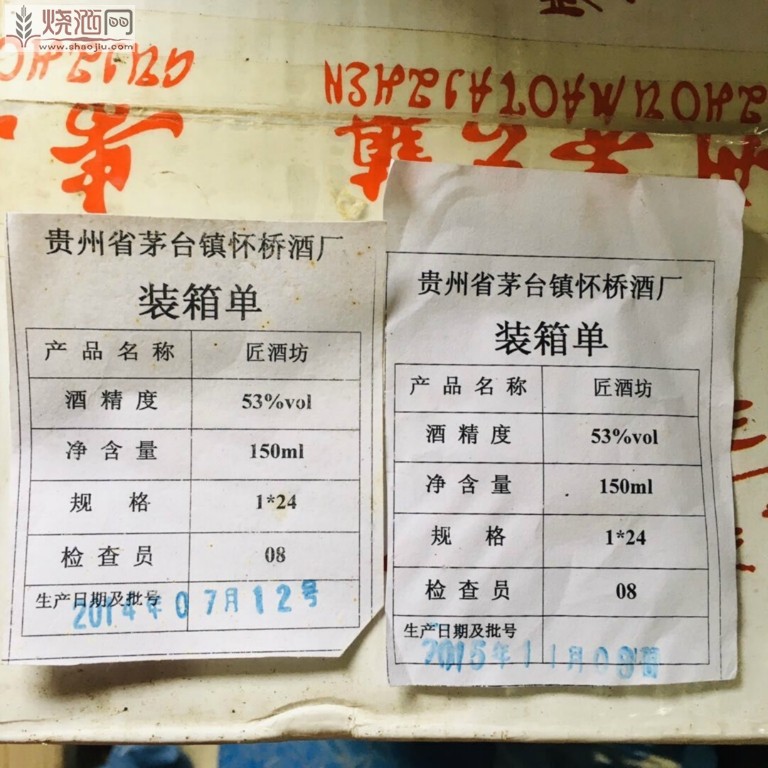 烧酒网
www.shaojiu.com
GUIZHO
ZHOUMAOTAIZHEN
贵州省茅台镇怀桥酒厂
装箱单
产品名称 匠酒坊
酒精度 53%vol
净含量 150ml
规格 1*24
检查员 08
生产日期及批号
2014年07月12号
贵州省茅台镇怀桥酒厂
装箱单
产品名称 匠酒坊
酒精度 53%vol
净含量 150ml
规格 1*24
检查员 08
生产日期及批号
2015年11月09号